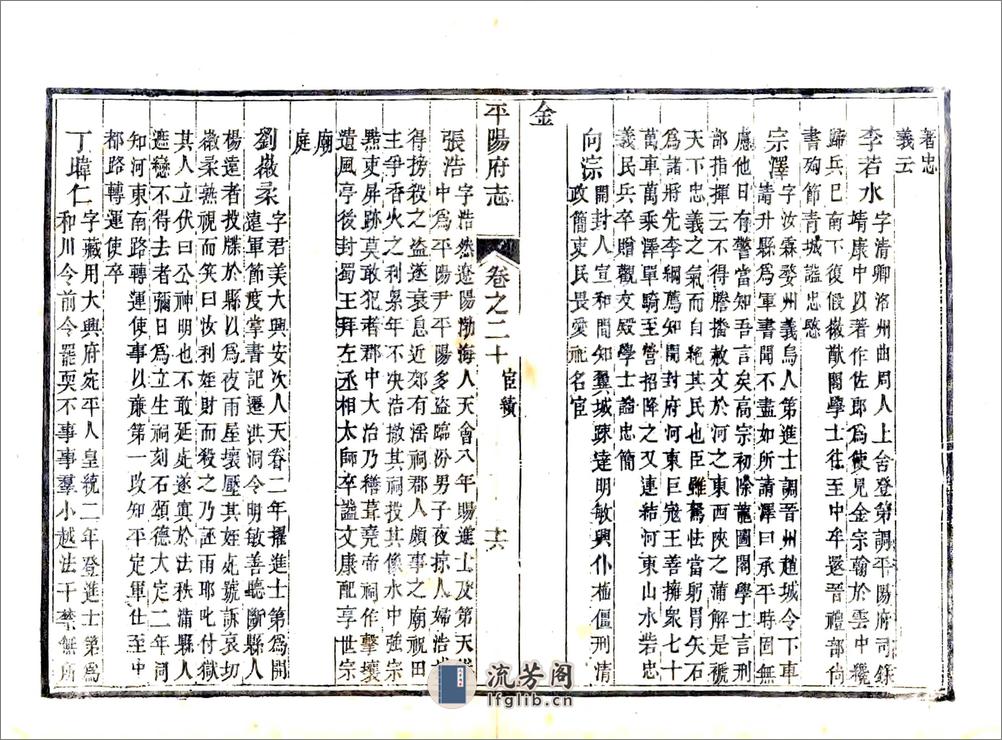 著忠
義云
李若水字清卿洺州曲周人上舍登第調平陽府司錄
靖康中以著作佐郎為使見金宗翰於雲中纔
歸兵已南下復假徽猷閣學士往至中牟還晉禮部尚
書殉節青城謚忠愍
宗澤字汝霖婺州義烏人第進士調晉州趙城令下車
請升縣為軍書聞不盡如所請澤曰承平時固無
慮他日有警當知吾言矣高宗初除龍圖閣學士言刑
部指揮云不得謄播赦文於河之東西陝之蒲解是褫
天下忠義之氣而自絕其民也臣雖駑怯當躬冒矢石
為諸將先李綱薦知開封府河東巨寇王善擁衆七十
萬車萬乘澤單騎至營招降之又連結河東山水砦忠
義民兵卒贈觀文殿學士謚忠簡
向宗開封人宣和間知翼城疎達明敏興仆植僵刑清
政簡吏民畏愛祀名宦
金
平陽府志 卷之二十 宦績 十六
張浩字浩然遼陽渤海人天會八年賜進士及第天
中為平陽尹平陽多盜臨汾男子夜掠人婦浩
得搒殺之盜遂衰息近郊有淫祠郡人頗事之廟祝田
主爭香火之利累年不決浩撤其祠投其像水中強宗
黠吏屏跡莫敢犯者郡中大治乃繕葺堯帝祠作擊壤
遺風亭後封蜀王拜左丞相太師卒謚文康配享世宗
廟
庭
劉徽柔字君美大興安次人天眷二年擢進士第為開
遠軍節度掌書記遷洪洞令明敏善聽斷縣人
楊遠者投牒於縣以為夜雨屋壞壓其姪死號訴哀切
徽柔熟視而笑曰汝利姪財而殺之乃誣雨耶叱付獄
其人立伏曰公神明也不敢延死遂寘於法秩滿縣人
遮戀不得去者彌日為立生祠刻石頌德大定二年同
知河東南路轉運使事以廉第一改知平定軍仕至中
都路轉運使卒
丁暐仁字藏用大興府宛平人皇統二年登進士第為
和川令前令罷耎不事事羣小越法干禁無所